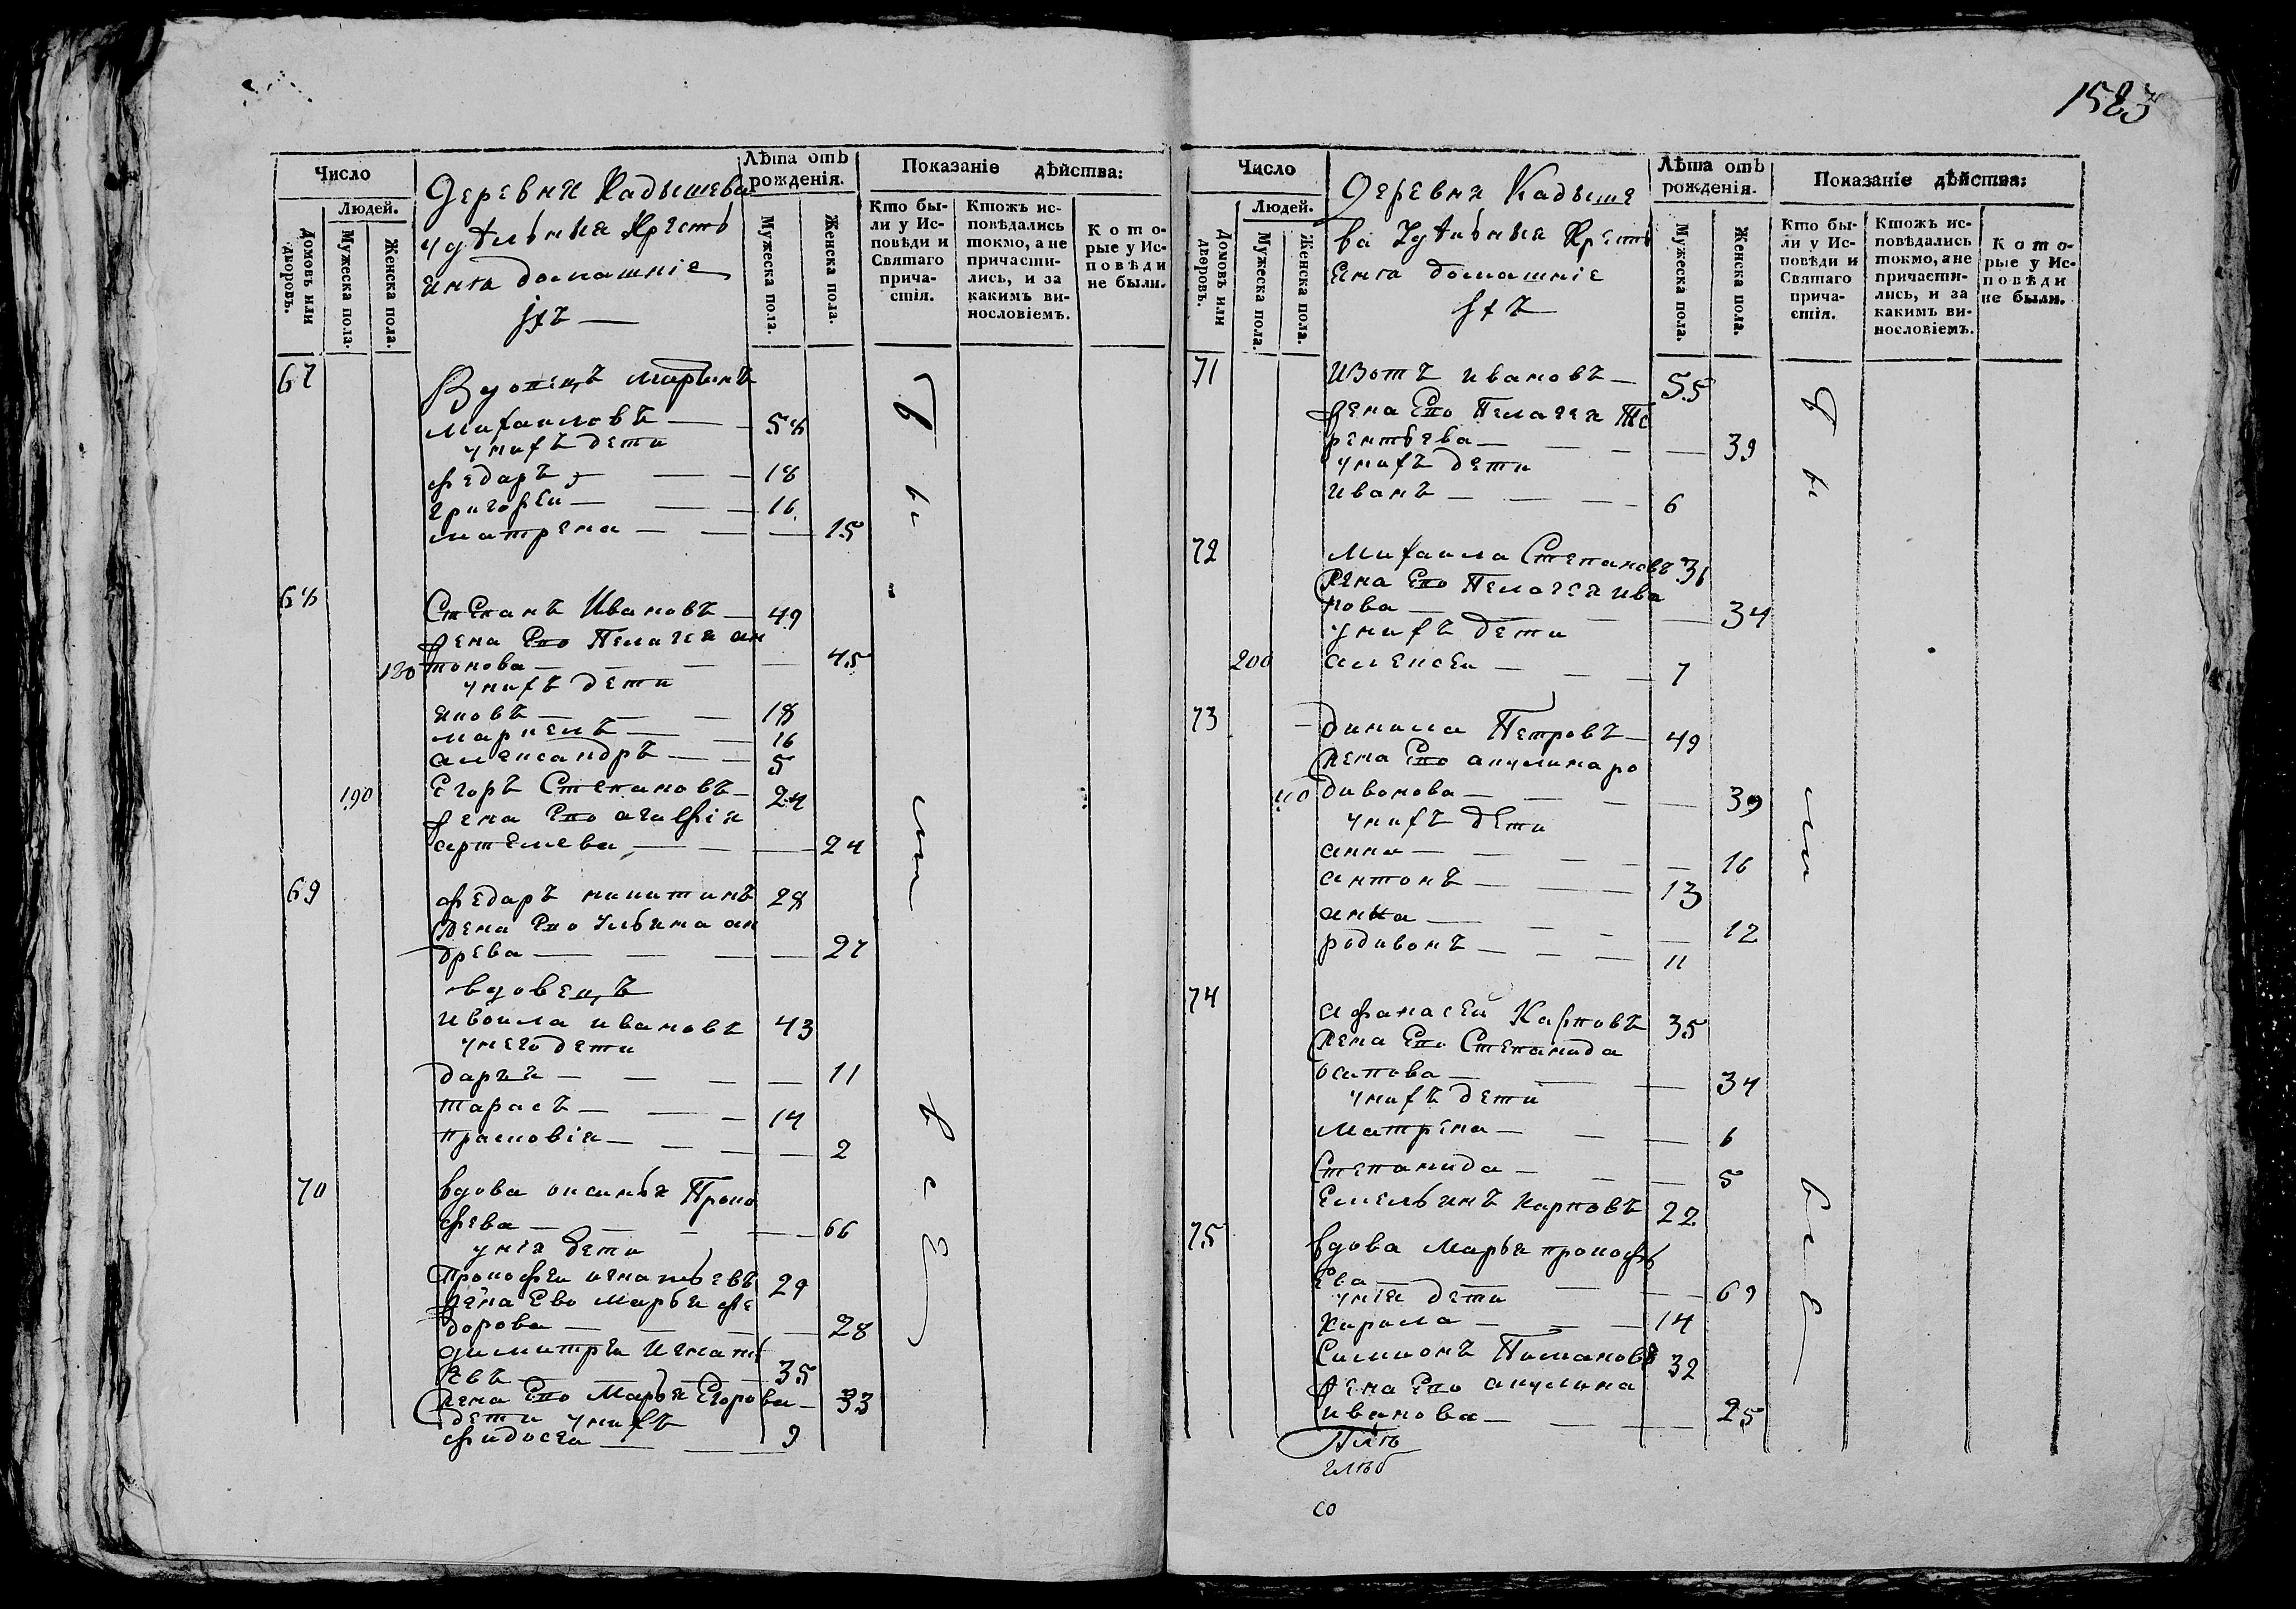 1583
Число
Людей.
Домовъ или дворовъ.
Мужеска пола.
Женска пола.
Деревни Кадышева
удѣльныя Крестъ
янга домашніе
ихъ
Лѣта отъ рожденія.
Мужеска пола.
Женска пола.
Показаніе дѣйства:
Кто бы-
ли у Ис-
повѣди и
Святаго
прича-
стія.
Ктожъ ис-
повѣдались
токмо, а не
причасти-
лись, и за
какимъ ви-
нословіемъ.
К о т о-
рые у Ис-
п о в ѣ д и
не были.
67 Вдовецъ Мартынъ
Михаиловъ 58
у нихъ дети
Федаръ 18
Григорѣи 16
Матрена 15
68 Степанъ Ивановъ 49
жена Его Пелагея ан
180 тонова 45
у нихъ дети
Яковъ 18
Маркелъ 16
Александръ 5
190 Егоръ Степановъ 24
жена Его Агафія
Артемева 24
69 Федаръ Никитинъ 28
жена Его Ульяна ан
древа 27
вдовецъ
Ивоила Ивановъ 43
у него дети
Дарья 11
Тарасъ 14
Прасковія 2
70 вдова Оксинья Проко
фева 66
у нея дети
Прокофеи Игнатьевъ 29
жена Ево Марья Фе
дорова 28
Димитреи Игнать
евъ 35
жена Его Марья Егорова 33
дети у нихъ
Федосеи 9
Число
Людей.
Домовъ или дворовъ.
Мужеска пола.
Женска пола.
Деревни Кадыше
ва Удѣльныя Кресть
янга домашніе
ихъ
Лѣта отъ рожденія.
Мужеска пола.
Женска пола.
Показаніе дѣйства:
Кто бы-
ли у Ис-
повѣди и
Святаго
прича-
стія.
Ктожъ ис-
повѣдались
токмо, а не
причасти-
лись, и за
какимъ ви-
нословіемъ.
К о т о-
рые у Ис-
п о в ѣ д и
не были.
71 Изотъ Ивановъ 55
жена Его Пелагея Те
рентьева 39
у нихъ дети
Иванъ 6
72 Михаила Степановъ 36
жена Его Пелагея Ива
нова 34
у нихъ дети
200 Алексеи 7
73 Данила Петровъ 49
жена Его Акулина ро
дивонова 39
у нихъ дети
Анна 16
Антонъ 13
Анна 12
Родивонъ 11
74 Афанасей Карповъ 35
жена Его Степанида
Осипова 34
у нихъ дети
Матрена 6
Степанида 5
Емельянъ Карповъ 22
75 вдова Марья Прокофь
ева 69
у нея дети
Кирила 14
Симионъ Пимановъ 32
жена Его Акулина
Иванова 25
со